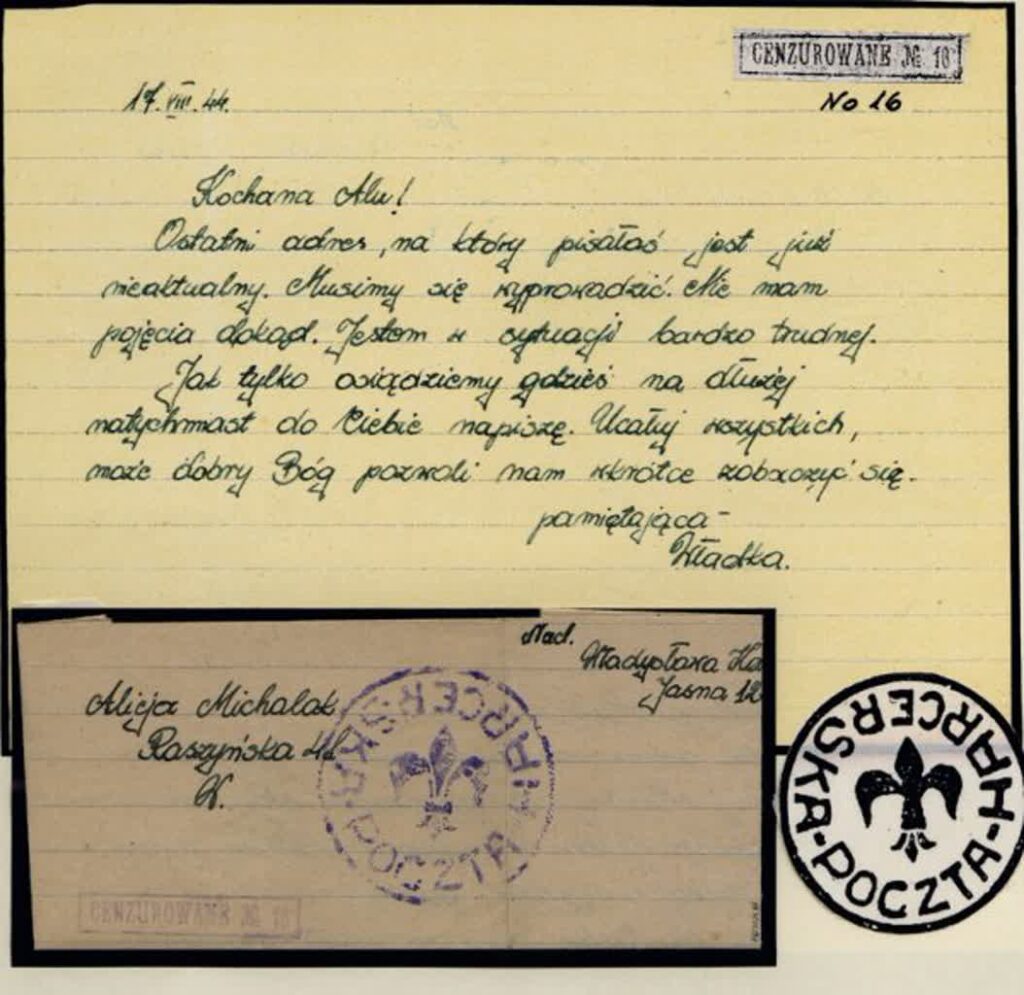 CENZUROWANE № 16
No 16
17.VIII.44.
Kochana Alu!
Ostatni adres, na który pisałaś jest już
nieaktualny. Musimy się wyprowadzić. Nie mam
pojęcia dokąd. Jestem w sytuacji bardzo trudnej.
Jak tylko osiądziemy gdzieś na dłużej
natychmiast do Ciebie napiszę. Ucałuj wszystkich,
może dobry Bóg pozwoli nam wkrótce zobaczyć się.
pamiętająca -
Władka.
Nad.
Władysława
Jasna 12
Alicja Michalak
Raszyńska
W.
HARCERSKA-POCZTA-
CENZUROWANE № 16
HARCERSKA-POCZTA-